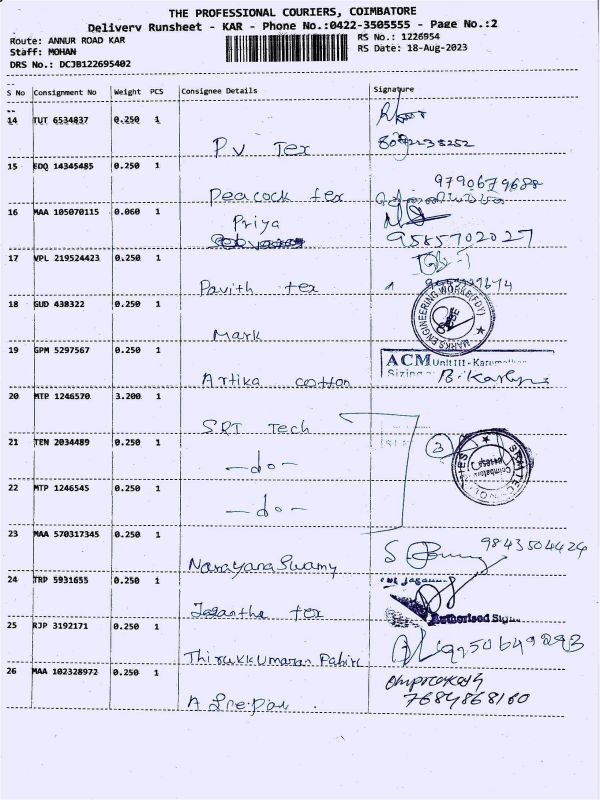 THE PROFESSIONAL COURIERS, COIMBATORE
Delivery Runsheet - KAR - Phone No.:0422-3505555 - Page No.:2
Route: ANNUR ROAD KAR
RS No.: 1226954
Staff: MOHAN
RS Date: 18-Aug-2023
DRS No.: DCJB122695402
S No Consignment No Weight PCS Consignee Details Signature
14 TUT 6534837 0.250 1
PV Tex
15 EDQ 14345485 0.250 1
Peacock tex 9790679688
16 MAA 105070115 0.060 1
Priya
9585702027
17 VPL 219524423 0.250 1
Pavith tex
18 GUD 438322 0.250 1
Mark
MARKS ENGINEERING WORKS(FDY)
19 GPM 5297567 0.250 1
Artika cotton
ACM Unit III - Karumathampatti
Sizing
20 MTP 1246570 3.200 1
SRT Tech
21 TEN 2034489 0.250 1
-do-
3
Coimbatore
22 MTP 1246545 0.250 1
-do-
23 MAA 570317345 0.250 1
Narayana Swamy 9843504424
24 TRP 5931655 0.250 1
Jasantha tex
Authorised Sign
25 RJP 3192171 0.250 1
Thirukkumaran Fabric
26 MAA 102328972 0.250 1
omprakash
7684868160